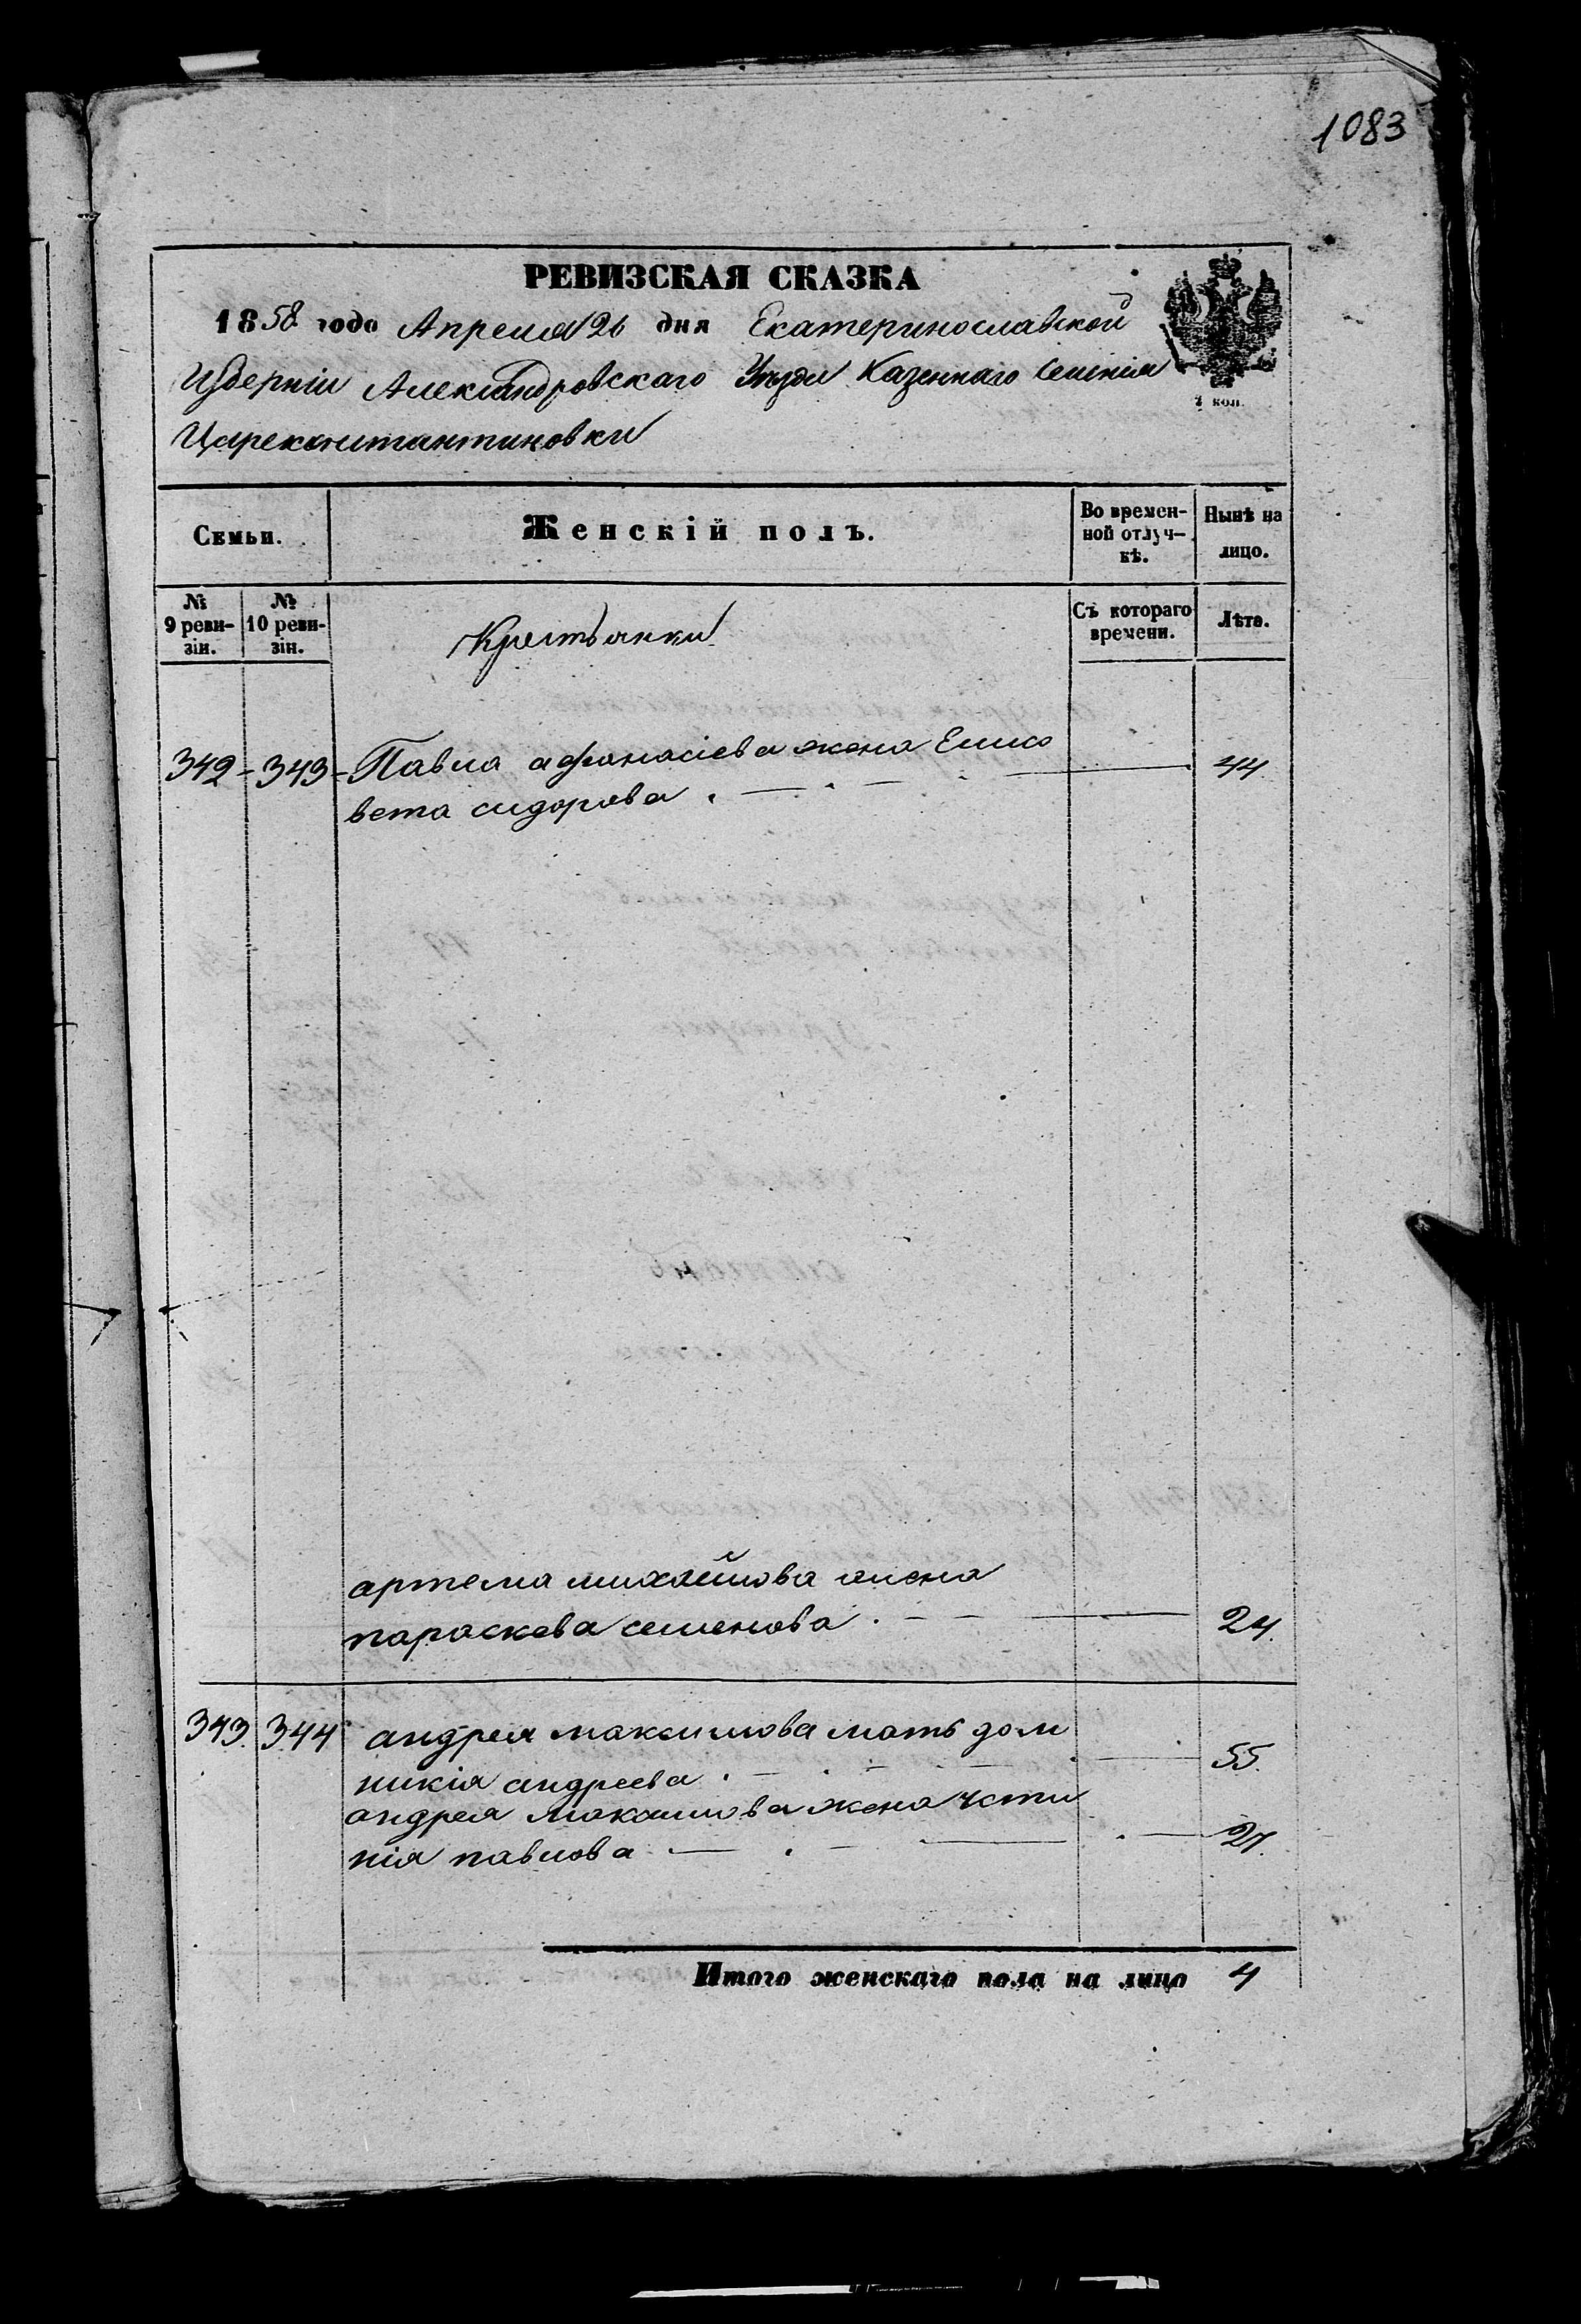 1083
РЕВИЗСКАЯ СКАЗКА
1858 года Апреля 26 дня Екатеринославской
Губерніи Александровскаго Уѣзда Казеннаго Селенія
Цареконстантиновки
7 коп.
Семьи. Женскій полъ. Во времен-
ной отлуч-
кѣ. Нынѣ на
лицо.
№
9 реви-
зіи. №
10 реви-
зіи. Крестьянки Съ котораго
времени. Лѣта.
342 - 343 - Павла афанасіева жена Елиса
вета сидорова 44
артема михайлова жена
параскева семенова 24.
343. 344 андрея максимова мать дом
никія андреева 55.
андрея максимова жена усти
нія павлова 27.
Итого женскаго пола на лицо 4